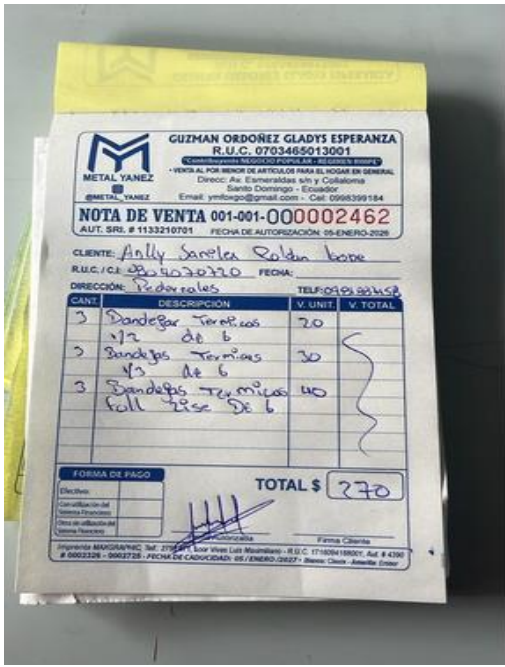 GUZMAN ORDOÑEZ GLADYS ESPERANZA
R.U.C. 0703465013001
"Contribuyente NEGOCIO POPULAR - REGIMEN RIMPE"
• VENTA AL POR MENOR DE ARTÍCULOS PARA EL HOGAR EN GENERAL
Direcc: Av. Esmeraldas s/n y Collaloma
Santo Domingo - Ecuador
Email: ymfoxgo@gmail.com - Cel: 0998399184
METAL YANEZ
@METAL_YANEZ
NOTA DE VENTA 001-001-000002462
AUT. SRI. # 1133210701 FECHA DE AUTORIZACIÓN: 05-ENERO-2026
CLIENTE: Roldan
R.U.C. / C.I: 0804070720 FECHA:
DIRECCIÓN: Pedernales TELF:
CANT. DESCRIPCIÓN V. UNIT. V. TOTAL
3 Bandejas Termicas 20
1/2 de 6
3 Bandejas Termicas 30
1/3 de 6
3 Bandejas Termicas 40
Full Zise De 6
FORMA DE PAGO
Efectivo:
Con utilización del
Sistema Financiero
Otros sin utilización del
Sistema Financiero
TOTAL $ 270
Firma Cliente
Imprenta MAXGRAPHIC, Telf: Loor Vivas Luis Maximiliano - R.U.C. Aut. # 4390
# 0002326 - 0002725 - FECHA DE CADUCIDAD: 05 / ENERO /2027 -